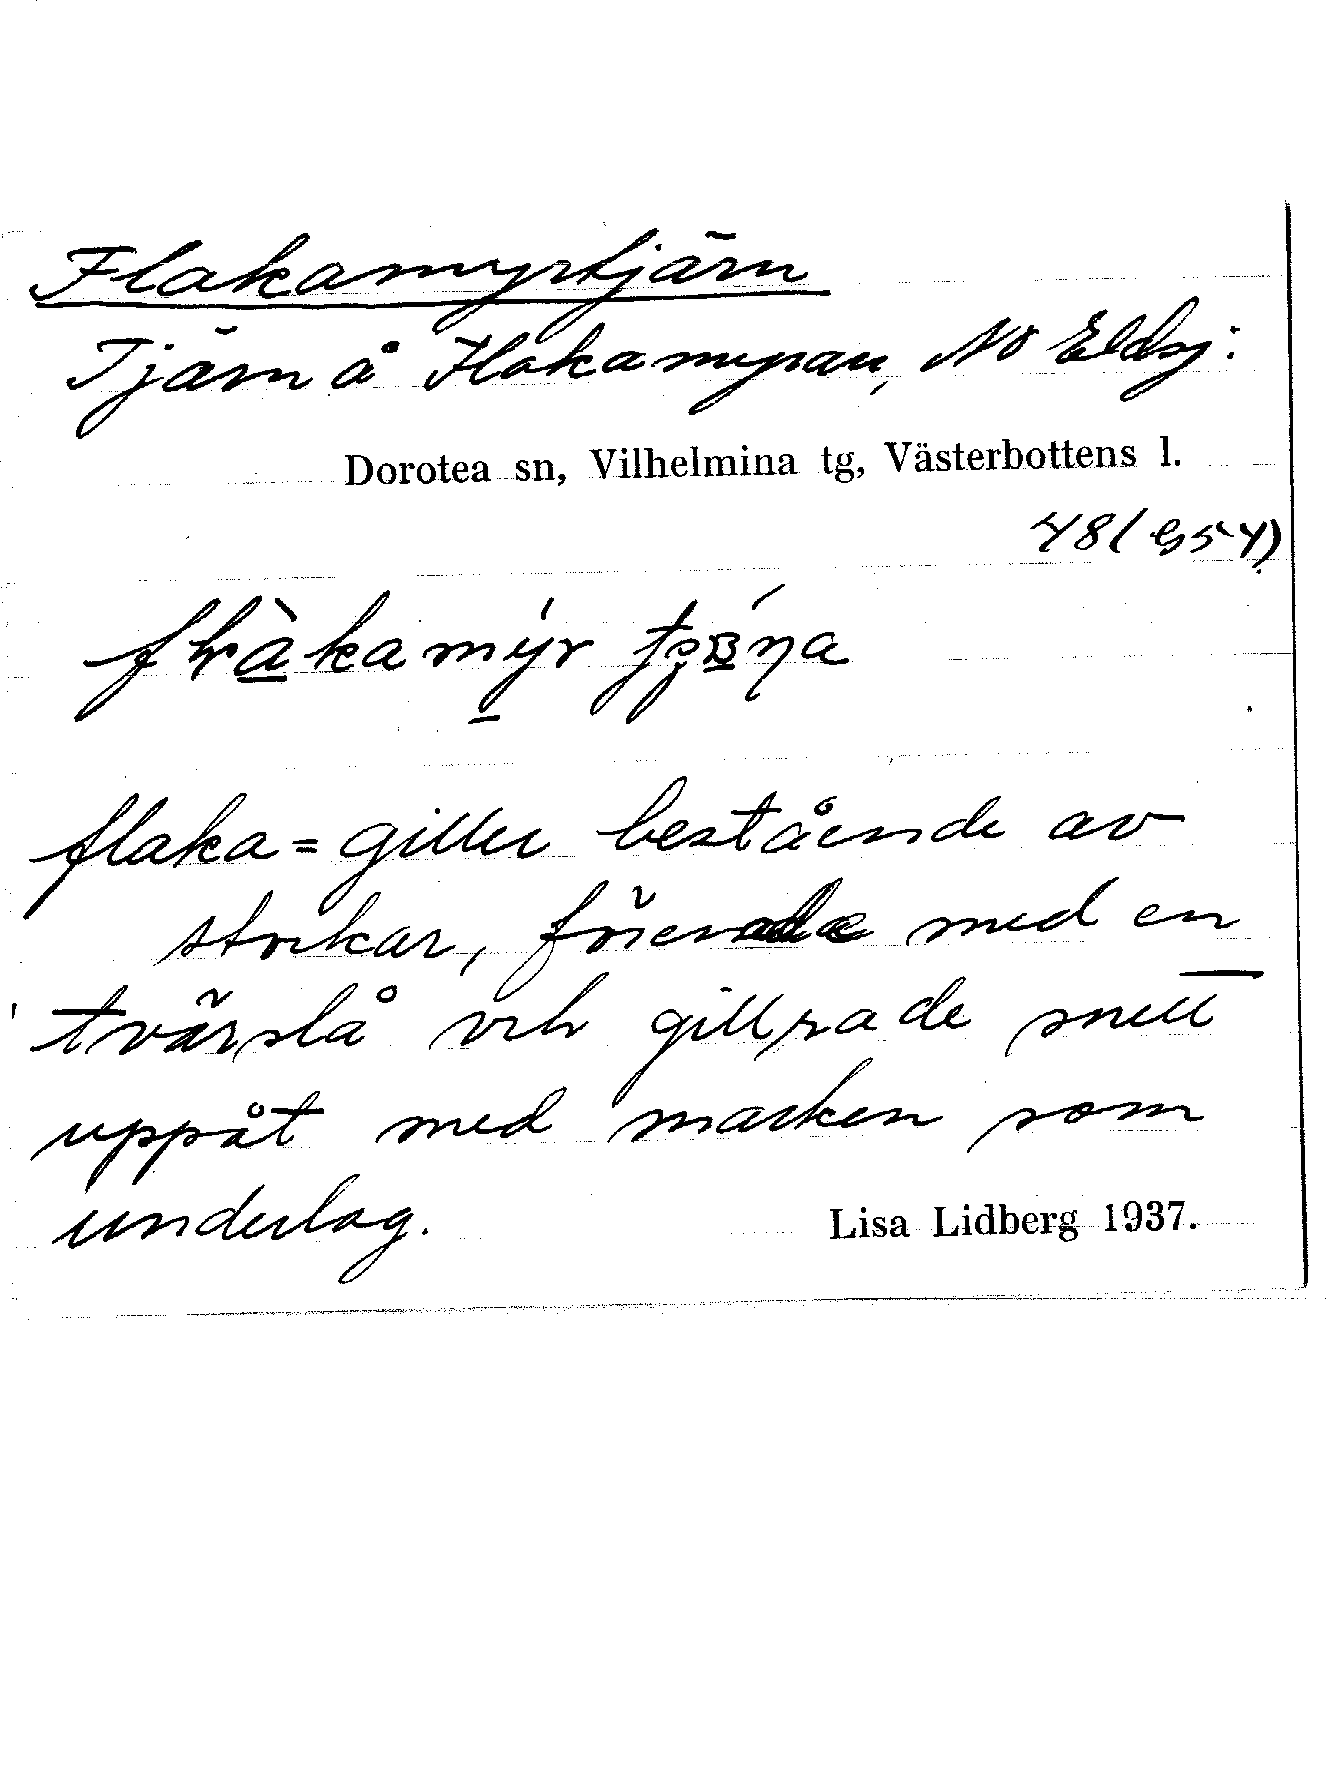 Flakamyrtjärn
Tjärn å Flakamyran, NO Eldsj:
Dorotea sn, Vilhelmina tg, Västerbottens l.
48(
flaka = giller bestående av
stockar, förenade med en
tvärslå och gillrade snett
uppåt med marken som
underlag.
Lisa Lidberg 1937.